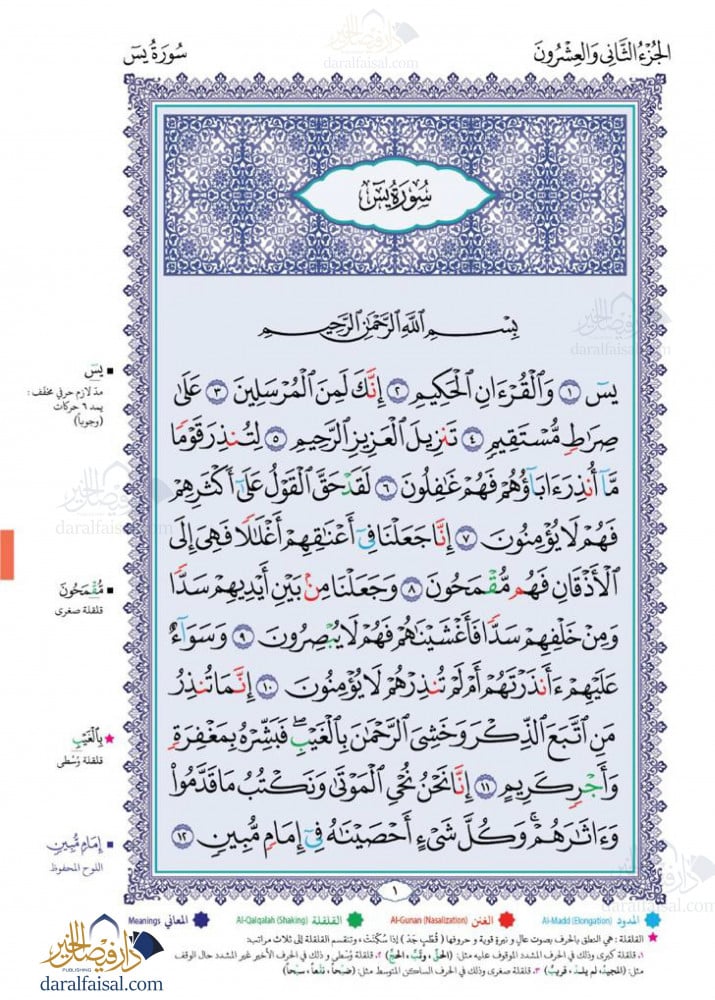 دار فيصل الخير
daralfaisal.com
الجُزْءُ الثَّانِي وَالعِشْرُونَ
سُورَةُ يسٓ
سُورَةُ يسٓ
بِسْمِ ٱللَّهِ ٱلرَّحْمَٰنِ ٱلرَّحِيمِ
يسٓ ١ وَٱلْقُرْءَانِ ٱلْحَكِيمِ ٢ إِنَّكَ لَمِنَ ٱلْمُرْسَلِينَ ٣ عَلَىٰ
صِرَٰطٍ مُّسْتَقِيمٍ ٤ تَنزِيلَ ٱلْعَزِيزِ ٱلرَّحِيمِ ٥ لِتُنذِرَ قَوْمًا
مَّآ أُنذِرَ ءَابَآؤُهُمْ فَهُمْ غَٰفِلُونَ ٦ لَقَدْ حَقَّ ٱلْقَوْلُ عَلَىٰٓ أَكْثَرِهِمْ
فَهُمْ لَا يُؤْمِنُونَ ٧ إِنَّا جَعَلْنَا فِىٓ أَعْنَٰقِهِمْ أَغْلَٰلًا فَهِىَ إِلَى
ٱلْأَذْقَانِ فَهُم مُّقْمَحُونَ ٨ وَجَعَلْنَا مِنۢ بَيْنِ أَيْدِيهِمْ سَدًّا
وَمِنْ خَلْفِهِمْ سَدًّا فَأَغْشَيْنَٰهُمْ فَهُمْ لَا يُبْصِرُونَ ٩ وَسَوَآءٌ
عَلَيْهِمْ ءَأَنذَرْتَهُمْ أَمْ لَمْ تُنذِرْهُمْ لَا يُؤْمِنُونَ ١٠ إِنَّمَا تُنذِرُ
مَنِ ٱتَّبَعَ ٱلذِّكْرَ وَخَشِىَ ٱلرَّحْمَٰنَ بِٱلْغَيْبِ ۖ فَبَشِّرْهُ بِمَغْفِرَةٍ
وَأَجْرٍ كَرِيمٍ ١١ إِنَّا نَحْنُ نُحْىِ ٱلْمَوْتَىٰ وَنَكْتُبُ مَا قَدَّمُوا۟
وَءَاثَٰرَهُمْ ۚ وَكُلَّ شَىْءٍ أَحْصَيْنَٰهُ فِىٓ إِمَامٍ مُّبِينٍ ١٢
يسٓ
مدّ لازم حرفي مخفّف :
يمد ٦ حركات
(وجوباً)
مُّقْمَحُونَ
قلقلة صغرى
بِالْغَيْبِ
قلقلة وُسْطى
إِمَامٍ مُّبِينٍ
اللوح المحفوظ
دار فيصل الخير
daralfaisal.com
دار فيصل الخير
daralfaisal.com
دار فيصل الخير
daralfaisal.com
١
المدود Al-Madd (Elongation) الغنن Al-Gunan (Nasalization) القلقلة Al-Qalqalah (Shaking) المعاني Meanings
القلقلة : هي النطق بالحرف بصوت عالٍ و نبرة قوية و حروفها ( قُطْبُ جَدٍ ) إذا سُكِّنَتْ ، وتنقسم القلقلة إلى ثلاث مراتب:
١. قلقلة كبرى وذلك في الحرف المشدد الموقوف عليه مثل: (الحَقّ ، وتَبّ ، الحَجّ) ٢. قلقلة وُسطى و ذلك في الحرف الأخير غير المشدد حال الوقف
مثل: (المجيدْ، لم يلدْ، قريبْ) ٣. قلقلة صغرى وذلك في الحرف الساكن المتوسط مثل: (ضَبْحاً ، نقْعاً ، سبْحاً)
دار فيصل الخير
PUBLISHING
daralfaisal.com